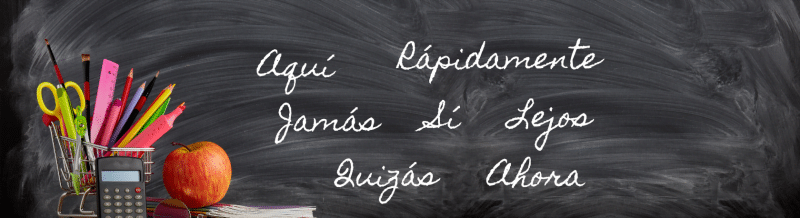 Aquí Rápidamente
Jamás Sí Lejos
Quizás Ahora